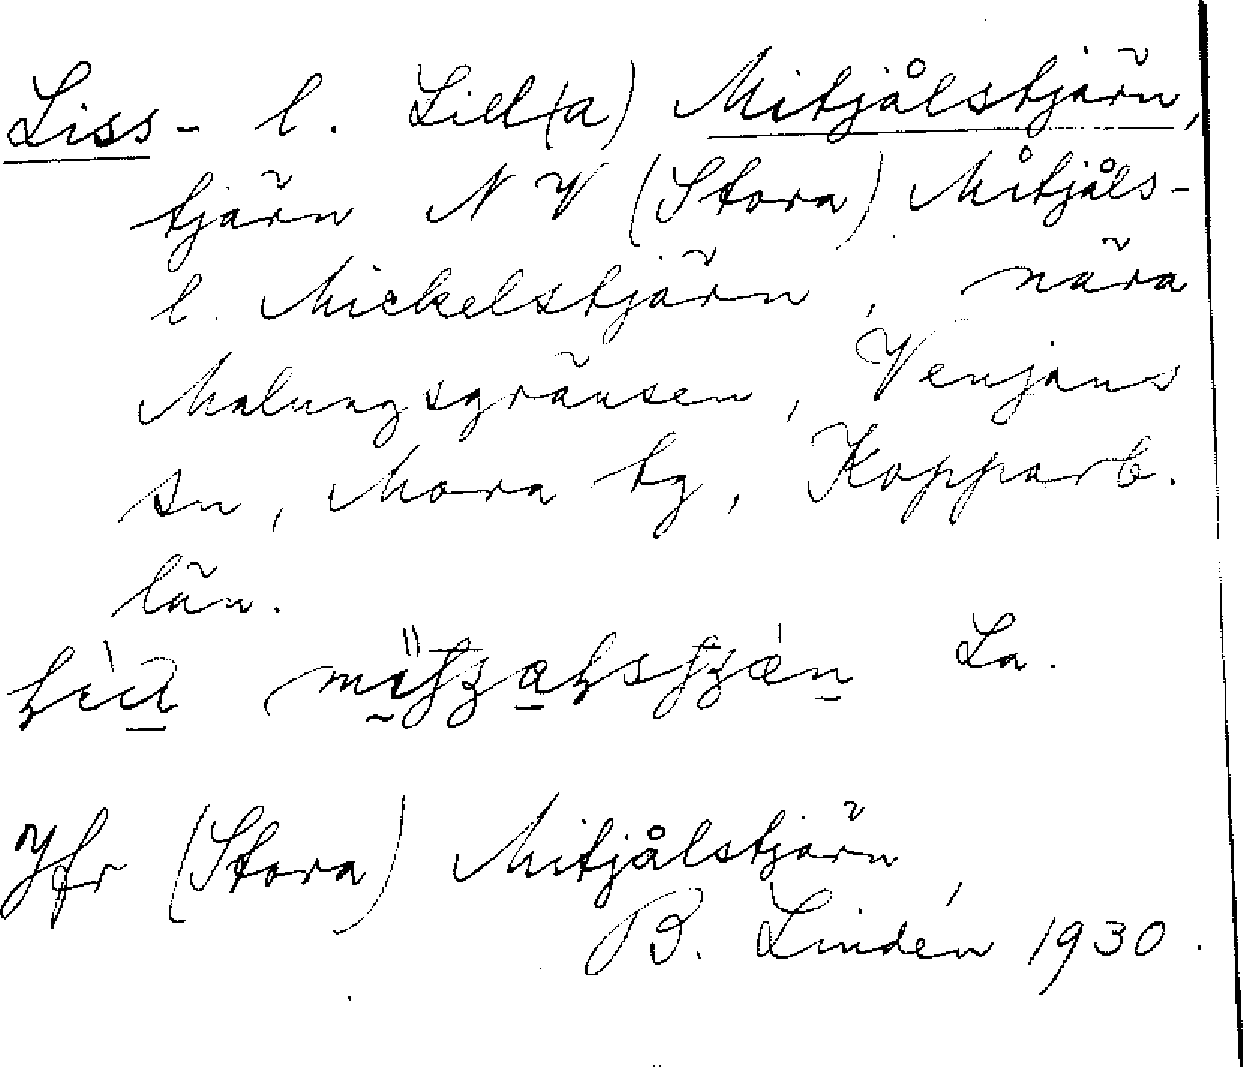 Liss- l. Lill(a) Mitjålstjärn,
tjärn NV (Stora) Mitjåls-
l. Mickelstjärn, nära
Malungsgränsen, Venjans
sn, Mora tg, Kopparb.
län.
La.
Jfr (Stora) Mitjålstjärn,
B. Lindén 1930.